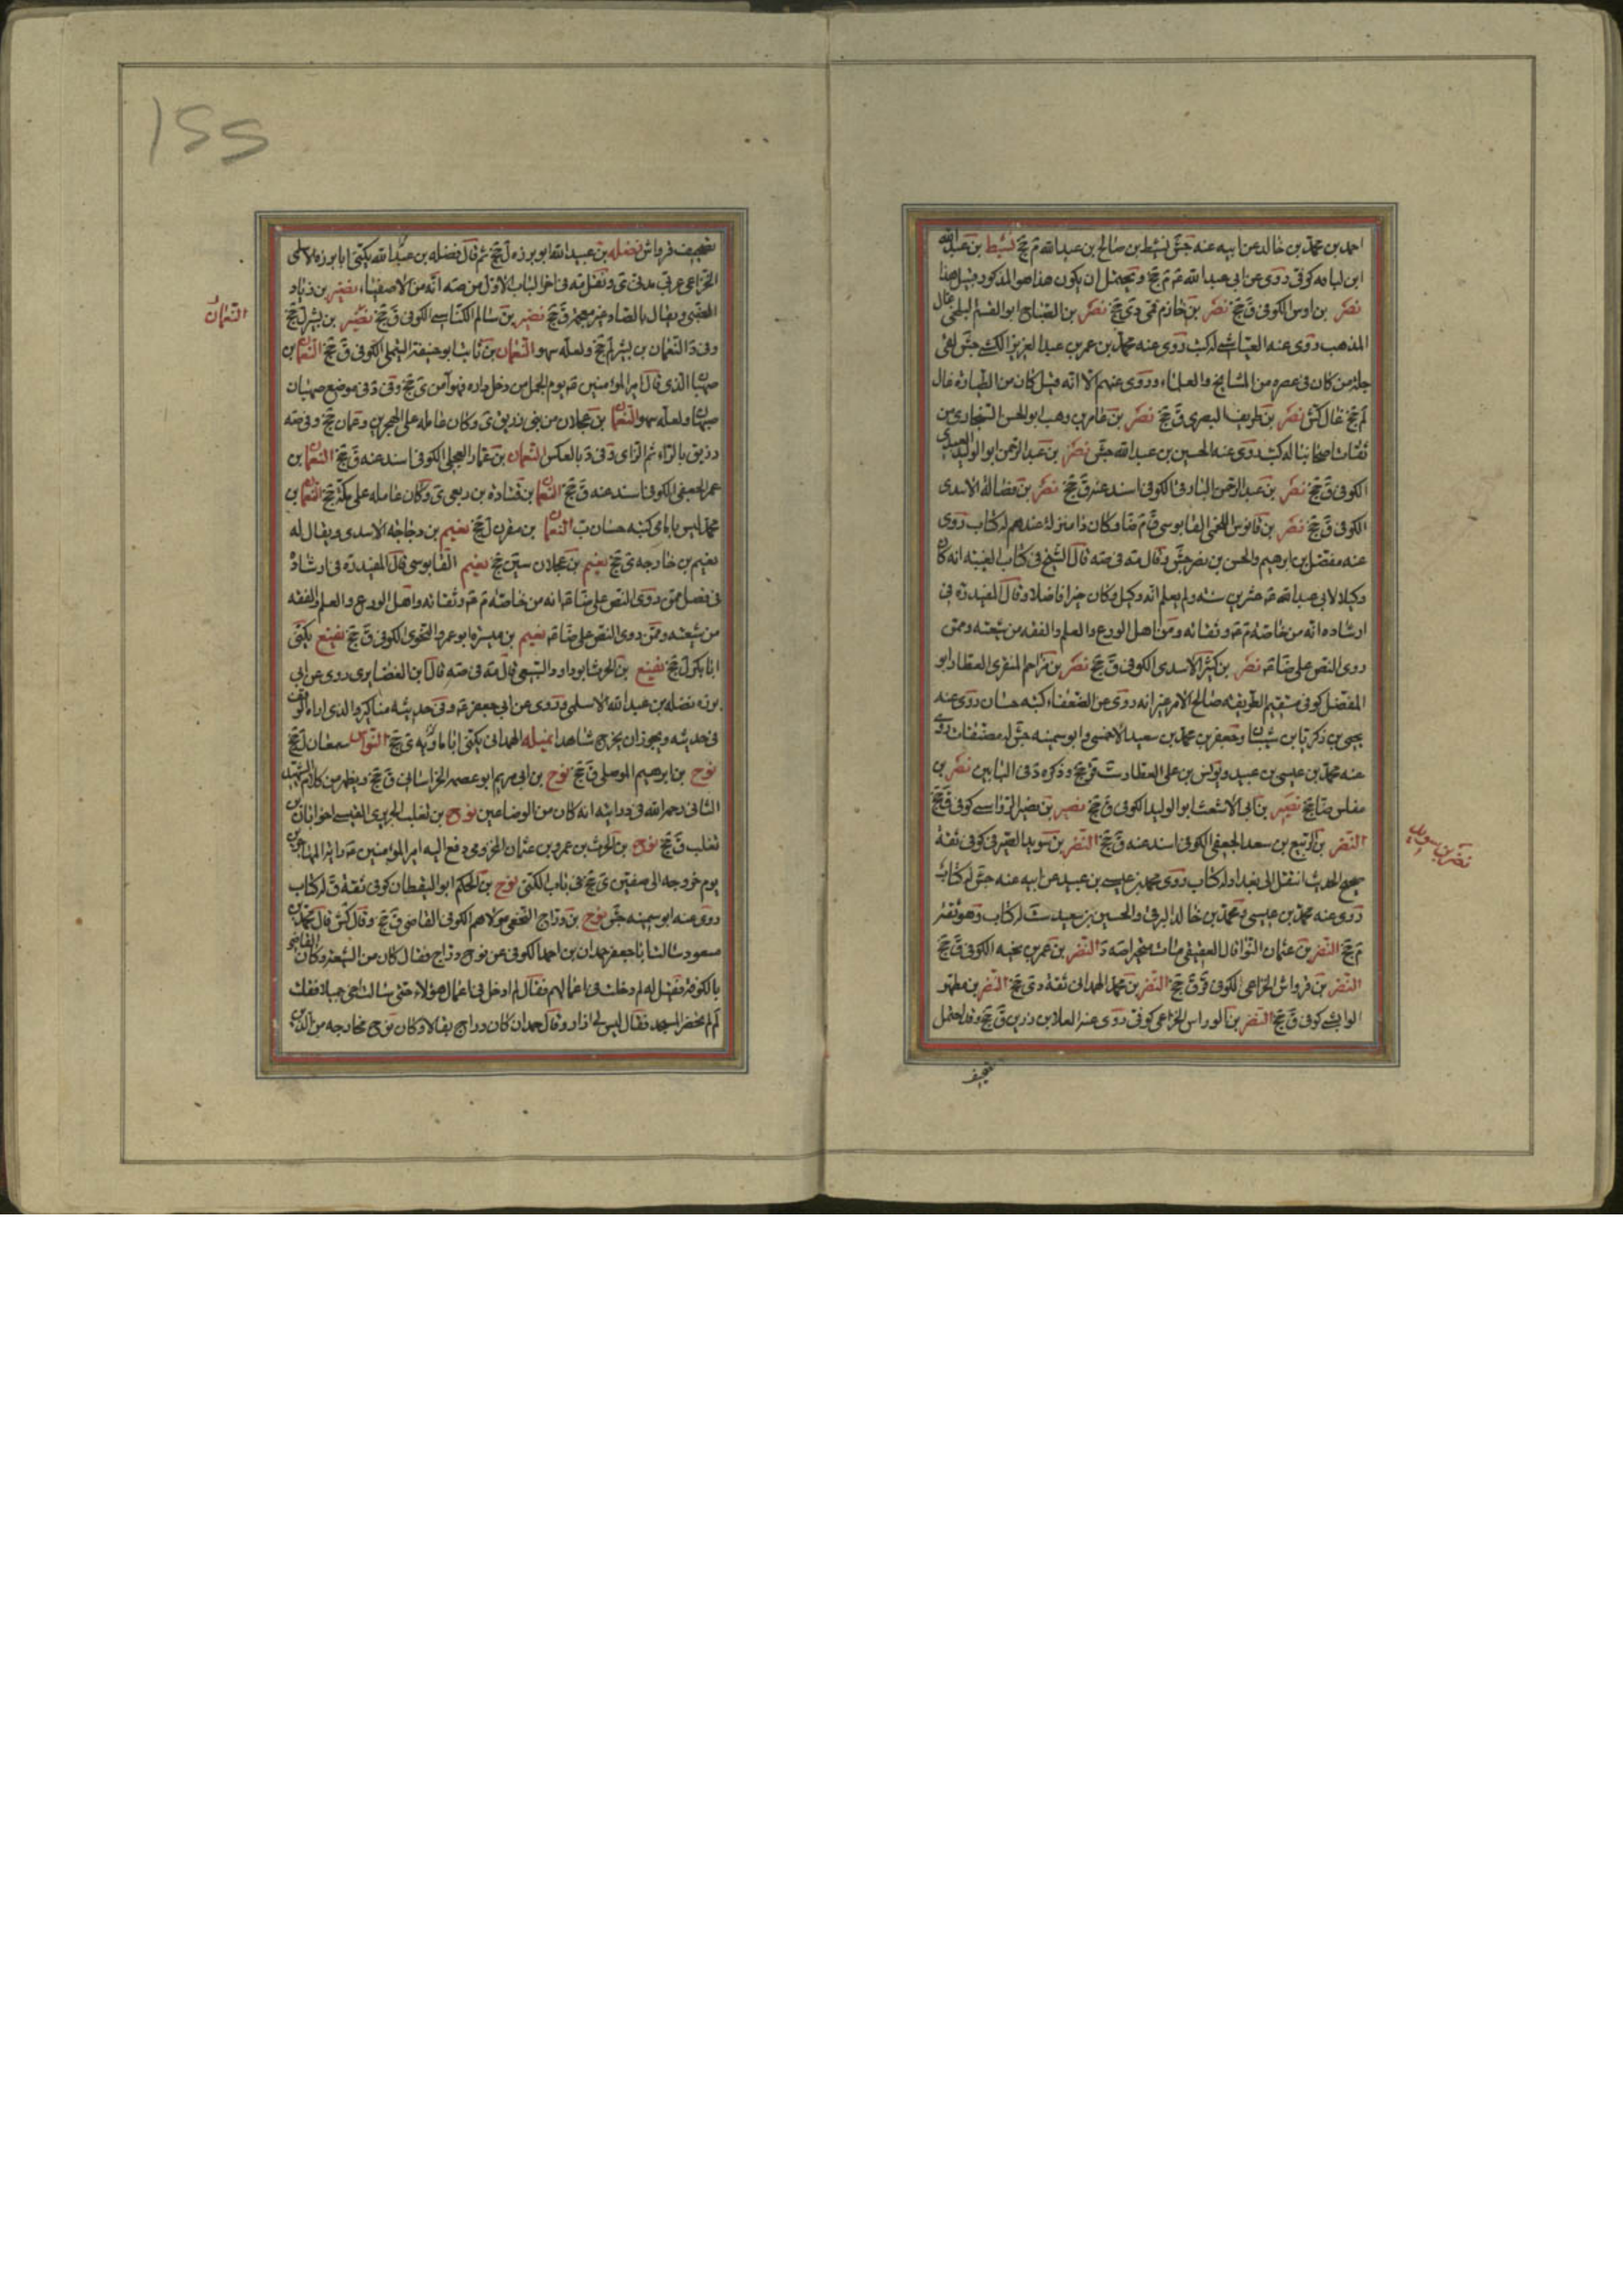 احمد بن محمد بن خالد عن ابيه عنه جش نشيط بن صالح بن عبد الله م جخ نشيط بن عبد الله
ابن لبابه كوفى روى عن ابى عبد الله م م جخ ويحتمل ان يكون هذا هو المذكور قبل هذا
نصر بن اوس الكوفى ق جخ نصر بن خازم قمى دى جخ نصر بن الصباح ابو القسم البلخى غال
المذهب روى عنه العياشى له كتب روى عنه محمد بن عمر بن عبد العزيز الكشى جش لقى
جله من كان فى عصره من المشايخ والعلماء وروى عنهم الا انه قيل كان من الطياره غال
لم جخ غال كش نصر بن طريف البصرى ق جخ نصر بن عامر بن وهب ابو الحسن السنجارى من
ثقات اصحابنا له كتب روى عنه الحسين بن عبد الله جش نصر بن عبد الرحمن ابو الوليد العبدى
الكوفى ق جخ نصر بن عبد الرحمن البارقى الكوفى اسند عنه ق جخ نصر بن فضاله الاسدى
الكوفى ق جخ نصر بن قابوس اللخمى القابوسى ق م ضا وكان ذا منزلة عندهم له كتاب روى
عنه مفضل بن ابرهيم والحسن بن نصر جش وقال مة فى صه قال الشيخ فى كتاب الغيبه انه كان
وكيلا لابى عبد الله عشرين سنه ولم يعلم انه وكيل وكان خيرا فاضلا وقال المفيد ره فى
ارشاده انه من خاصته م وثقاته ومن اهل الورع والعلم والفقه من شيعته وممن
روى النص على ضا نصر بن كثير الاسدى الكوفى ق جخ نصر بن مزاحم المنقرى العطار ابو
المفضل كوفى مستقيم الطريقه صالح الامر غير انه روى عن الضعفاء كتبه حسان روى عنه
يحيى بن زكريا بن شيبان وجعفر بن محمد بن سعيد الاحمسى وابو سمينه جش له مصنفات روى
عنه محمد بن عيسى بن عبيد ويونس بن على العطار ست قر جخ وذكره د فى البابين نصر بن
مغلس ضا جخ نصير بن ابى الاشعث ابو الوليد الكوفى ق جخ نصير بن نصير الرواسى كوفى ق جخ
النضر بن الربيع بن سعد الجعفى الكوفى اسند عنه ق جخ النضر بن سويد الصيرفى كوفى ثقة
صحيح الحديث انتقل الى بغداد له كتاب روى محمد بن عيسى بن عبيد عن ابيه عنه جش له كتاب
روى عنه محمد بن عيسى ومحمد بن خالد البرقى والحسين بن سعيد ست له كتاب وهو ثقة
م جخ النضر بن عثمان النوا قال العقيقى مات متحيرا صه د النضر بن عمر بن الكوفى ق جخ
النضر بن قرواش الخزاعى الكوفى قر ق جخ النضر بن محمد الهمدانى ثقة دى جخ النضر بن مطهر
الوابشى كوفى ق جخ النضر بن الوراس الخزاعى كوفى روى عنه العلا بن رزين ق جخ وقد يحتمل
تصحيف
نضر بن سويد
تصحيف قرواش نضله بن عبيد الله ابو برزه ل جخ ثم قال فضله بن عبيد الله يكنى ابا برزه الاسلمى
الخزاعى عربى مدنى ى ونقل مة فى اخر الباب الاول من صه انه من الاصفياء نضير بن زياد
ويقال بالصاد غير معجمة ق جخ نضير بن سالم الكناسى الكوفى ق جخ نضير بن بشر ل جخ
وفى د النعمان بن بشر لم جخ ولعله سهو النعمان بن ثابت ابو حنيفة التيملى الكوفى ق جخ النعمان بن
صهبان الذى قال امير المؤمنين يوم الجمل من دخل داره فهو آمن ى جخ وفى د فى موضع صهبان
ولعله سهو النعمان بن عجلان من بنى زريق ى وكان عامله على البحرين وعمان جخ وفى صه
رزيق بالراء ثم الزاى د فى د بالعكس النعمان بن عمار العجلى الكوفى اسند عنه ق جخ النعمان بن
عمر الجعفى الكوفى اسند عنه ق جخ النعمان بن قتاده بن ربعى ى وكان عامله على مكة جخ النعمان بن
محمد ليس بامامى كتبه حسان ب النعمان بن مقرن ل جخ نعيم بن دجاجه الاسدى ويقال له
نعيم بن خارجه ى جخ نعيم بن عجلان سين جخ نعيم القابوسى قال المفيد ره فى ارشاده
فى فصل ممن روى النص على ضا انه من خاصته م وثقاته واهل الورع والعلم والفقه
من شيعته وممن روى النص على ضا نعيم بن ميسره ابو عمرو النحوى الكوفى ق جخ نفيع يكنى
ابا بكره ل جخ نفيع بن الحرث ابو داود السبيعى قال مة فى صه قال ابن الغضايرى روى عن ابى
برزه نضله بن عبد الله الاسلمى وروى عن ابى جعفر وفى حديثه مناكير والذى اراه التوقف
فى حديثه ويجوز ان يخرج شاهدا نميله الهمدانى يكنى ابا ماويه ى جخ النواس سمعان ل جخ
نوح بن ابرهيم الموصلى ق جخ نوح بن ابى مريم ابو عصمه الخراسانى ق جخ ويظهر من كلام الشهيد
الثانى رحمه الله فى درايته انه كان من الوضاعين نوح بن تغلب الجريرى القيسى اخو ابان بن
تغلب ق جخ نوح بن الحرث بن عمرو بن عثمان المخزومى دفع اليه امير المؤمنين راية المهاجرين
يوم خروجه الى صفين ى جخ فى باب الكنى نوح بن الحكم ابو اليقظان كوفى ثقة ق له كتاب
روى عنه ابو سمينه جش نوح بن دراج النخعى مولاهم الكوفى القاضى ق جخ وقال كش قال محمد بن
مسعود سالت ابا جعفر حمدان بن احمد الكوفى عن نوح دراج فقال كان من الشيعه وكان القاضى
بالكوفة فقيل له لم دخلت فى اعمالهم فقال لم ادخل فى اعمال هؤلاء حتى سالت اخى جميلا فقلت
لم لم تحضر المسجد فقال ليس لى ازار وقال حمدان كان دراج بقالا وكان نوح مخارجه من الذين
النعمان
١٥٥